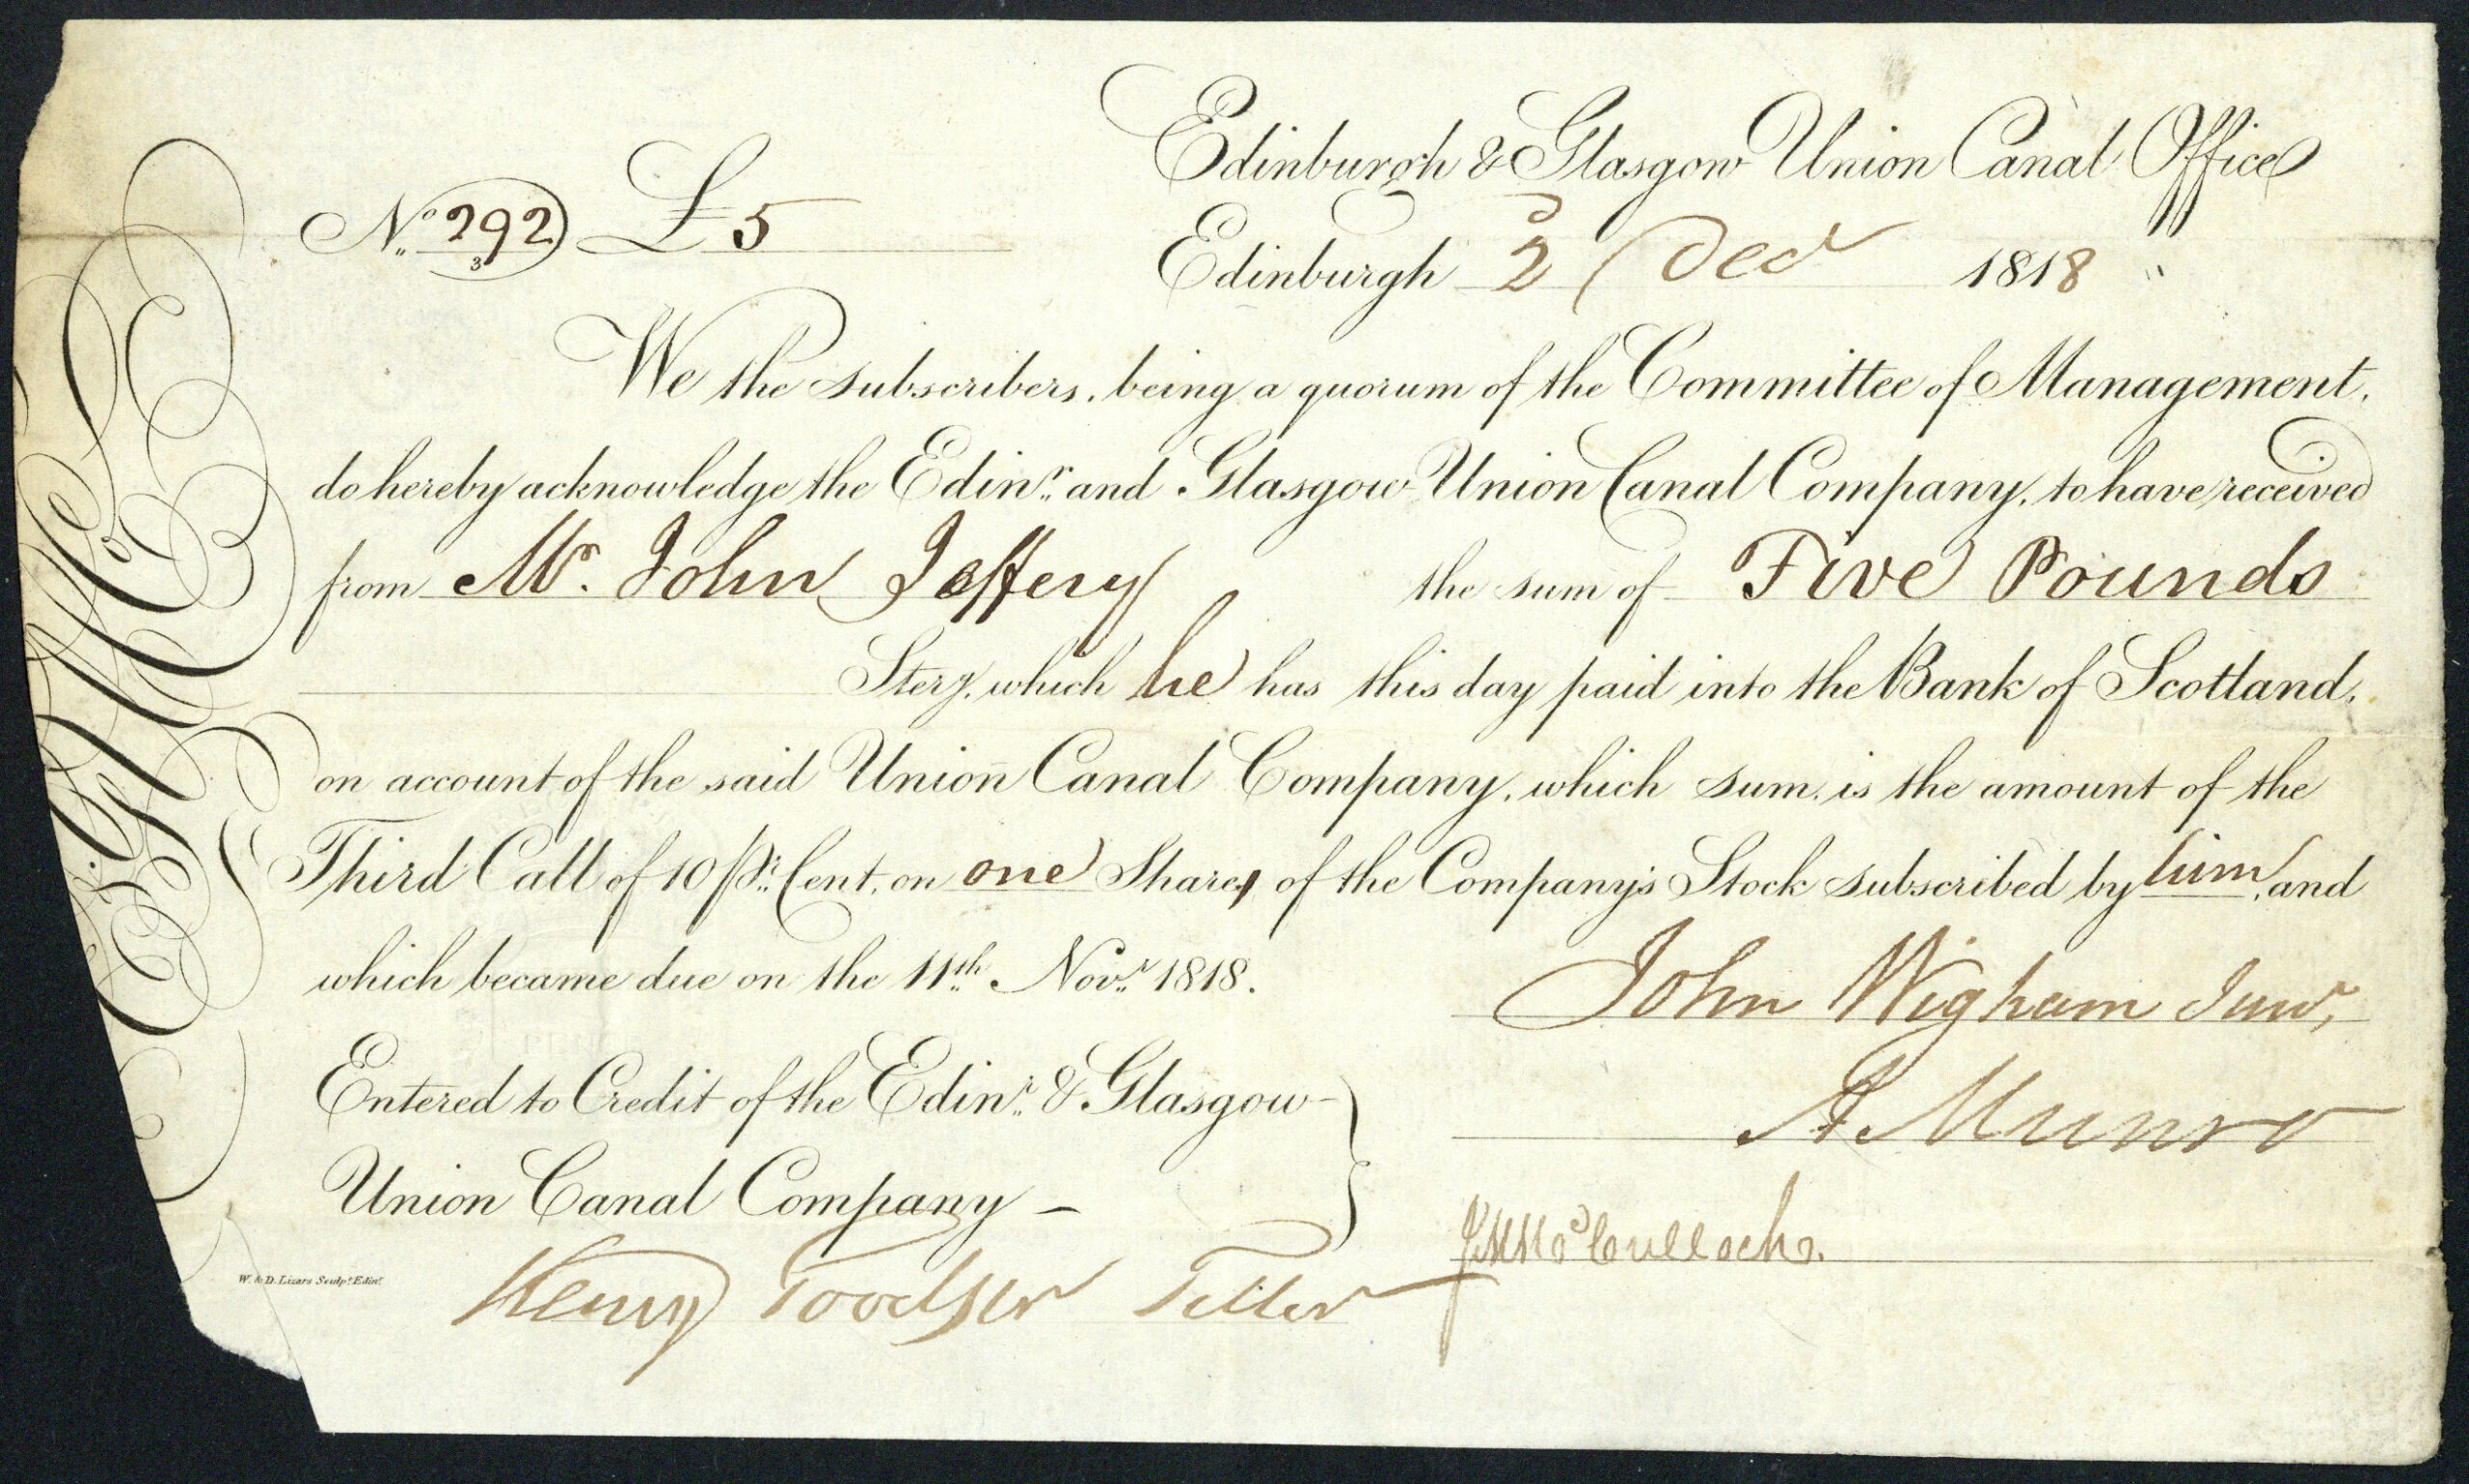 Edinburgh & Glasgow Union Canal Office
No. 292 £5
3
Edinburgh 2d Decr 1818
We the subscribers, being a quorum of the Committee of Management,
do hereby acknowledge the Edinr. and Glasgow Union Canal Company, to have received
from Mr. John Jeffery the sum of Five Pounds
Sterg. which he has this day paid into the Bank of Scotland,
on account of the said Union Canal Company, which sum is the amount of the
Third Call of 10 Pr. Cent, on one Share, of the Company's Stock subscribed by him, and
which became due on the 11th. Novr. 1818.
John Wigham Junr,
A Munro
Entered to Credit of the Edinr. & Glasgow
Union Canal Company –
McCulloch.
Henry Teller
W. & D. Lizars Sculpt. Edinr.